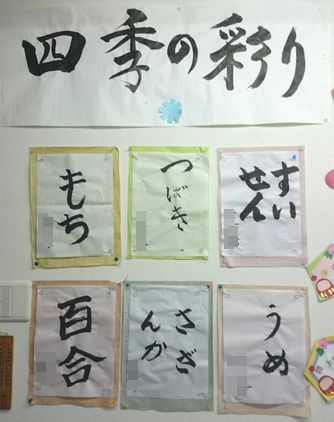 四季の彩り
すい
せん
つばき
もち
うめ
さざ
んか
百合